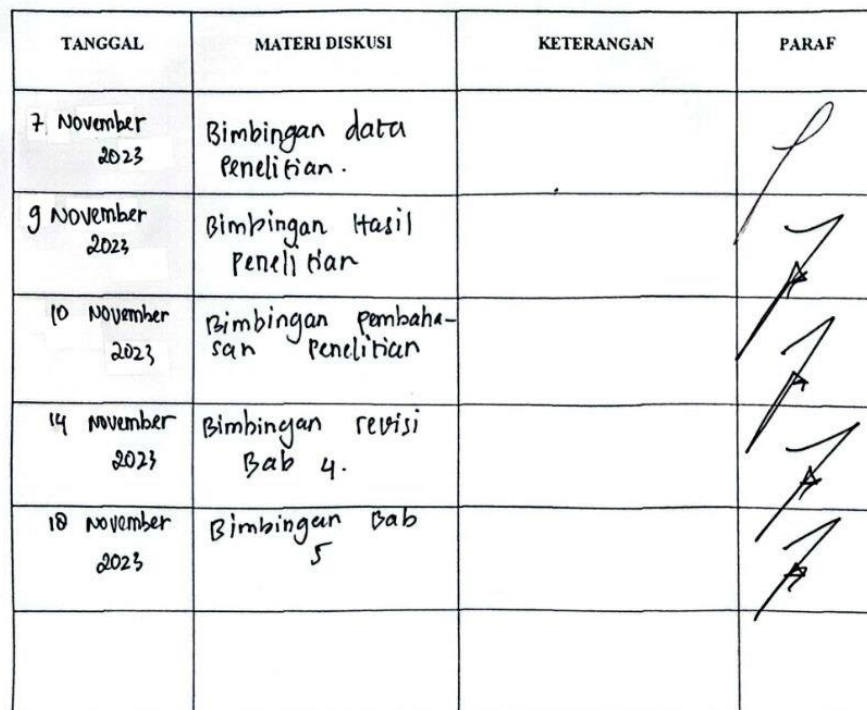 TANGGAL MATERI DISKUSI KETERANGAN PARAF
7 November Bimbingan data
2023 Penelitian.
9 November Bimbingan Hasil
2023 Penelitian
10 November Bimbingan pembaha-
2023 san Penelitian
14 November Bimbingan revisi
2023 Bab 4.
18 November Bimbingan Bab
2023 5